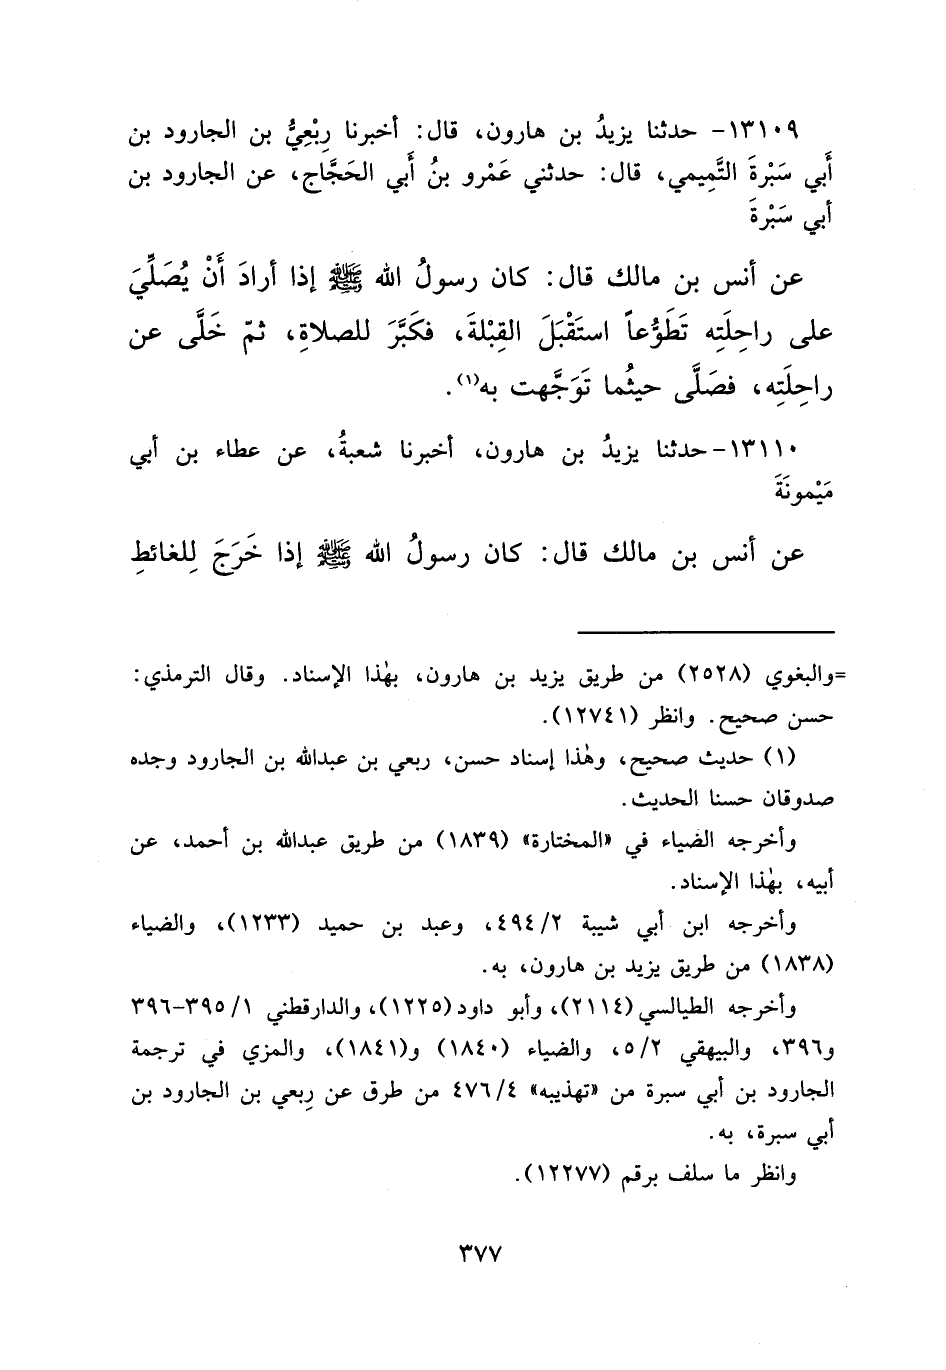 ١٣١٠٩- حدثنا يزيدُ بن هارون، قال: أخبرنا رِبْعِيُّ بن الجارود بن
أَبي سَبْرةَ التَّمِيمي، قال: حدثني عَمْرو بنُ أَبي الحَجَّاج، عن الجارود بن
أبي سَبْرةَ
عن أنس بن مالك قال: كان رسولُ الله ﷺ إذا أرادَ أَنْ يُصَلِّيَ
على راحِلَتِه تَطَوُّعاً استَقْبَلَ القِبْلةَ، فكَبَّرَ للصلاةِ، ثمّ خَلَّى عن
راحِلَتِه، فصَلَّى حيثُما تَوَجَّهت به(١).
١٣١١٠- حدثنا يزيدُ بن هارون، أخبرنا شعبةُ، عن عطاء بن أبي
مَيْمونَةَ
عن أنس بن مالك قال: كان رسولُ الله ﷺ إذا خَرَجَ لِلغائطِ
=والبغوي (٢٥٢٨) من طريق يزيد بن هارون، بهٰذا الإسناد. وقال الترمذي:
حسن صحيح. وانظر (١٢٧٤١).
(١) حديث صحيح، وهٰذا إسناد حسن، ربعي بن عبدالله بن الجارود وجده
صدوقان حسنا الحديث.
وأخرجه الضياء في «المختارة» (١٨٣٩) من طريق عبدالله بن أحمد، عن
أبيه، بهٰذا الإسناد.
وأخرجه ابن أبي شيبة ٤٩٤/٢، وعبد بن حميد (١٢٣٣)، والضياء
(١٨٣٨) من طريق يزيد بن هارون، به.
وأخرجه الطيالسي (٢١١٤)، وأبو داود (١٢٢٥)، والدارقطني ٣٩٥/١-٣٩٦
و٣٩٦، والبيهقي ٥/٢، والضياء (١٨٤٠) و(١٨٤١)، والمزي في ترجمة
الجارود بن أبي سبرة من «تهذيبه» ٤٧٦/٤ من طرق عن رِبعي بن الجارود بن
أبي سبرة، به.
وانظر ما سلف برقم (١٢٢٧٧).
٣٧٧